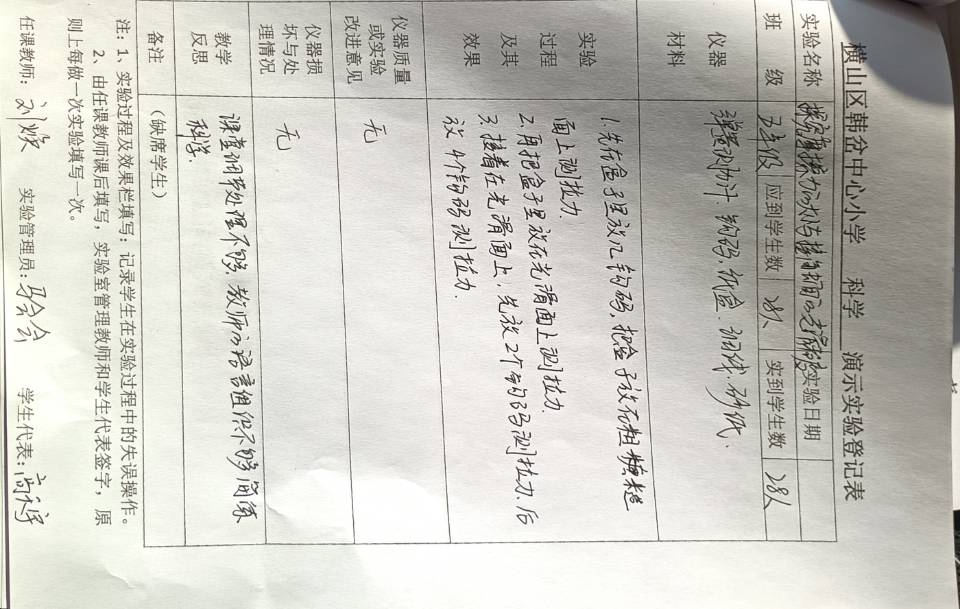 横山区韩岔中心小学 科学 演示实验登记表
实验名称 探究摩擦力的大小与接触面的光滑程度 实验日期
班 级 五年级 应到学生数 28人 实到学生数 28人
仪器 材料 弹簧测力计、钩码、纸盒、细线、砂纸.
实验 过程 及其 效果
1.先在盒子里放几钩码,把盒子放在粗糙
面上测拉力.
2.再把盒子里放在光滑面上测拉力.
3.接着在光滑面上,先放2个钩码测拉力.后
放4个钩码测拉力.
仪器质量 或实验 改进意见 无
仪器损 坏与处 理情况 无
教学 反思 课堂细节处理不够,教师的语言组织不够简练
科学.
备注 (缺席学生)
注:1、实验过程及效果栏填写:记录学生在实验过程中的失误操作。
2、由任课教师课后填写,实验室管理教师和学生代表签字,原
则上每做一次实验填写一次。
任课教师: 刘 实验管理员: 学生代表: 高